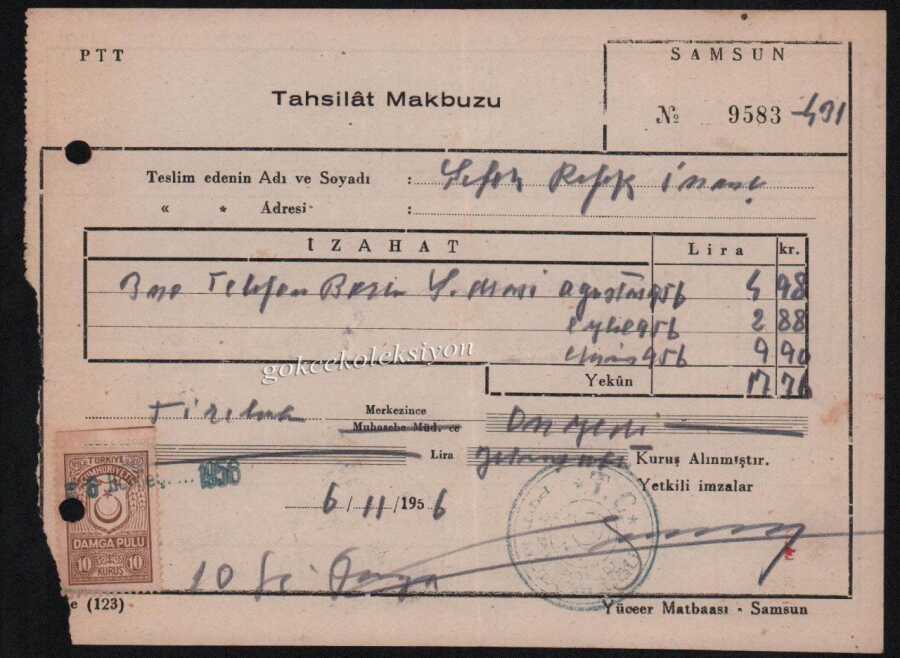 PTT
SAMSUN
Tahsilât Makbuzu
№ 9583 - 491
Teslim edenin Adı ve Soyadı : Refik İnanç
« « Adresi :
İZAHAT Lira kr.
Telefon ağustos 956 4 98
eylül 956 2 88
956 9 90
gokcekoleksiyon
Yekûn 17 76
Merkezince
Muhasebe Müd. ce
On yedi
Lira yetmiş altı Kuruş Alınmıştır.
Yetkili imzalar
6/11/1956
TÜRKİYE
CUMHURİYETİ
6 1956
DAMGA PULU
10 KURUŞ 10
T.C.
10
(123)
Yüceer Matbaası - Samsun